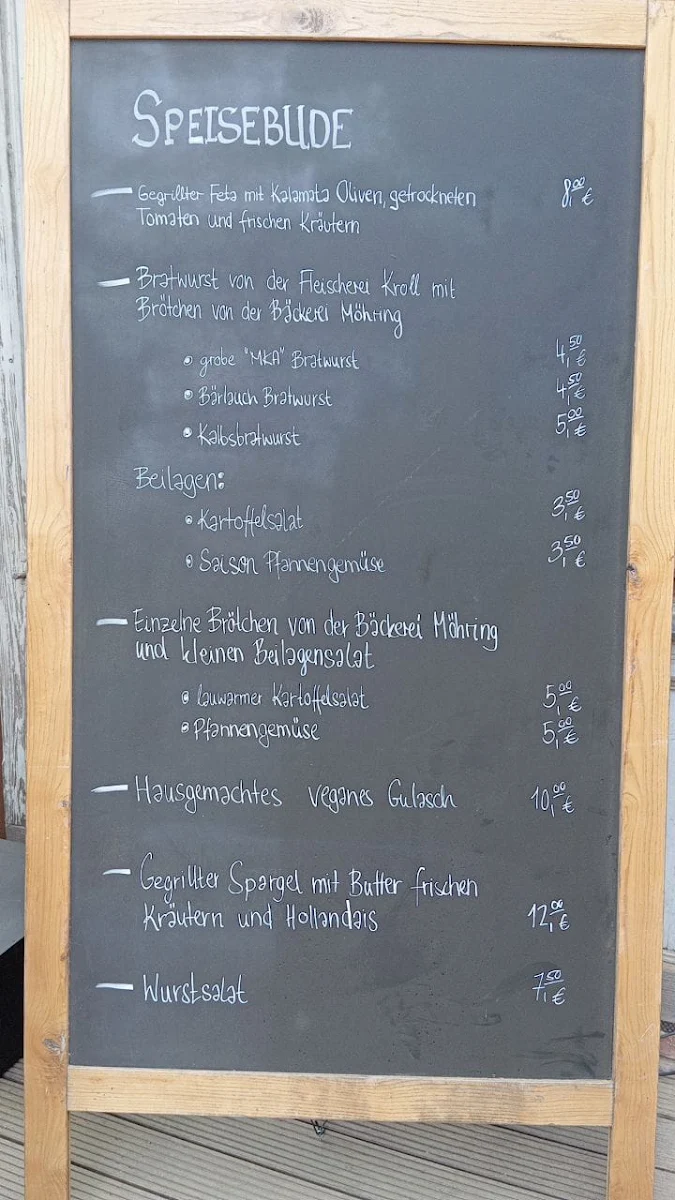 SPEISEBUDE
— Gegrillter Feta mit Kalamata Oliven, getrockneten 8,00 €
Tomaten und frischen Kräutern
— Bratwurst von der Fleischerei Kroll mit
Brötchen von der Bäckerei Möhring
• grobe "MKA" Bratwurst 4,50 €
• Bärlauch Bratwurst 4,50 €
• Kalbsbratwurst 5,00 €
Beilagen:
• Kartoffelsalat 3,50 €
• Saison Pfannengemüse 3,50 €
— Einzelne Brötchen von der Bäckerei Möhring
und kleinen Beilagensalat
• lauwarmer Kartoffelsalat 5,00 €
• Pfannengemüse 5,00 €
— Hausgemachtes veganes Gulasch 10,00 €
— Gegrillter Spargel mit Butter frischen
Kräutern und Hollandais 12,00 €
— Wurstsalat 7,50 €